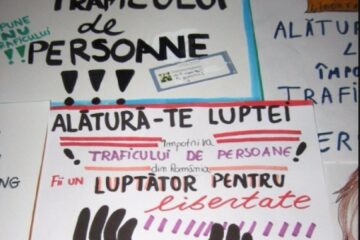 TRAFICULUI
de
PERSOANE
!!!
PUNE
NU
TRAFICULUI
!!
ALĂTURĂ-TE LUPTEI
împotriva
! TRAFICULUI DE PERSOANE !
din România
Fii UN LUPTĂTOR PENTRU
libertate
ALĂTUR
L
ÎMP
TRAFI
DE
PER
NG